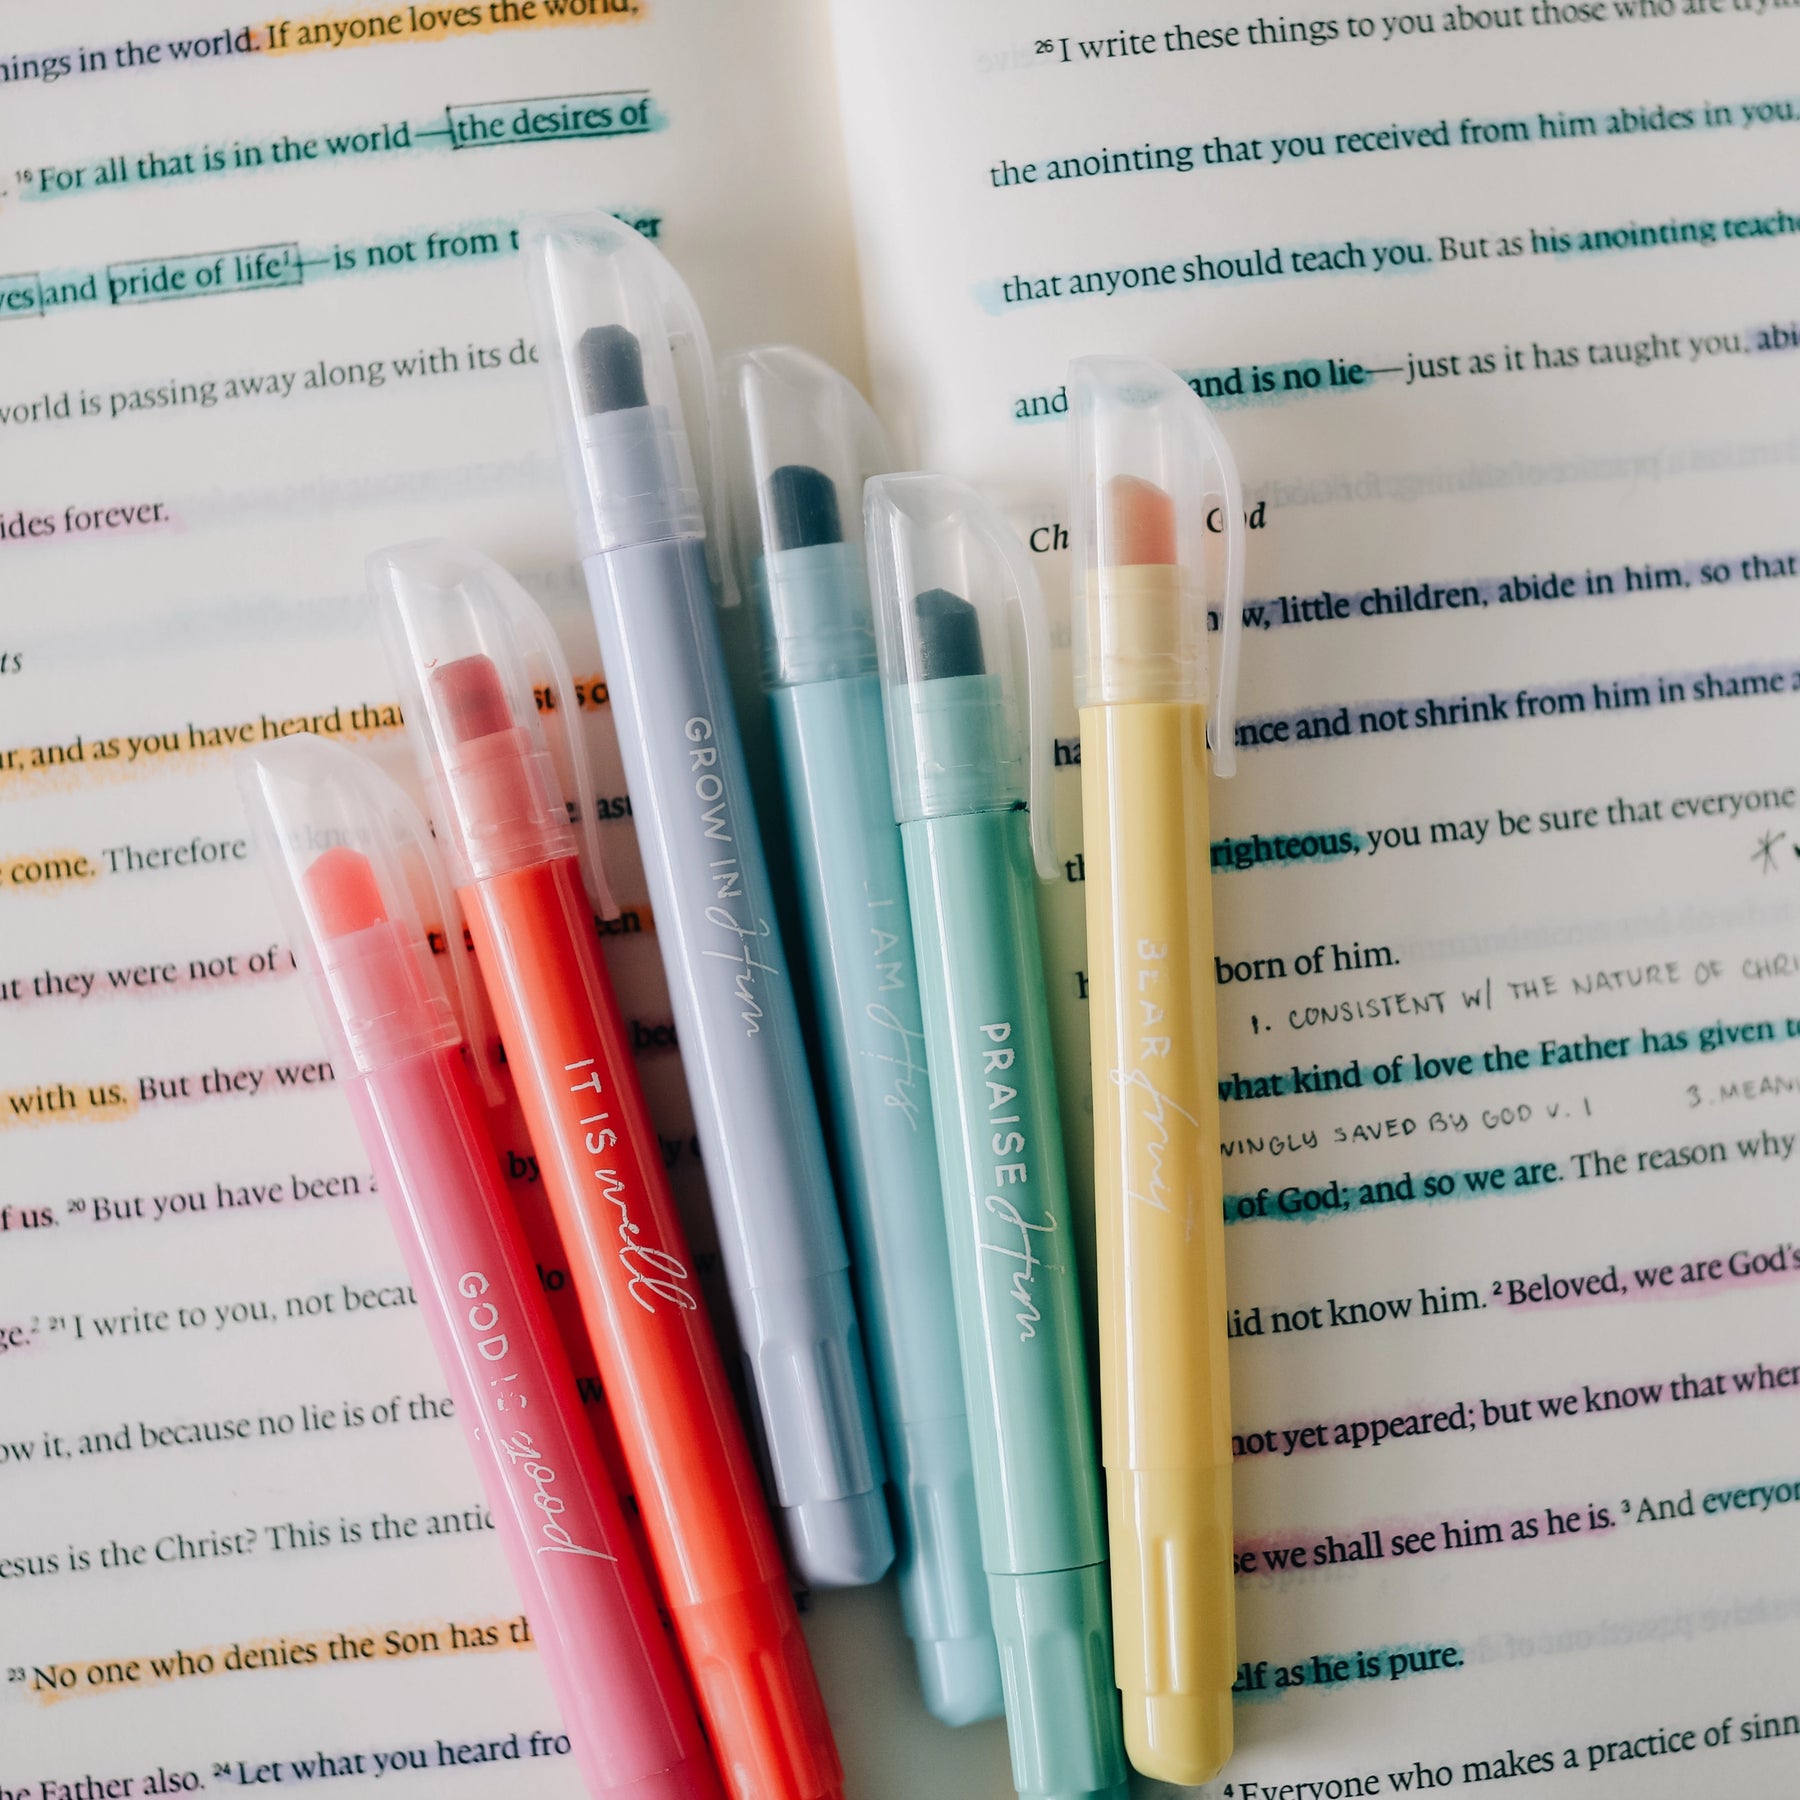 hings in the world. If anyone loves the world,
16 For all that is in the world—the desires of
yes and pride of life1—is not from
world is passing away along with its
ides forever.
ts
ur, and as you have heard that
come. Therefore
ut they were not of
with us. But they
f us. 20 But you have been
ge.2 21 I write to you, not becau
ow it, and because no lie is of the
esus is the Christ? This is the antic
23 No one who denies the Son has th
he Father also. 24 Let what you heard fro
GOD IS good
IT IS well
GROW IN Him
I AM His
PRAISE Him
BEAR fruit
26 I write these things to you about those who are
the anointing that you received from him abides in you,
that anyone should teach you. But as his anointing teache
and and is no lie—just as it has taught you, abi
God
little children, abide in him, so that
ence and not shrink from him in shame
righteous, you may be sure that everyone
born of him.
1. CONSISTENT W/ THE NATURE OF CHRI
what kind of love the Father has given to
VINGLY SAVED BY GOD V. 1 3. MEANI
of God; and so we are. The reason why
did not know him. 2 Beloved, we are God's
not yet appeared; but we know that when
se we shall see him as he is. 3 And everyon
elf as he is pure.
4 Everyone who makes a practice of sinn